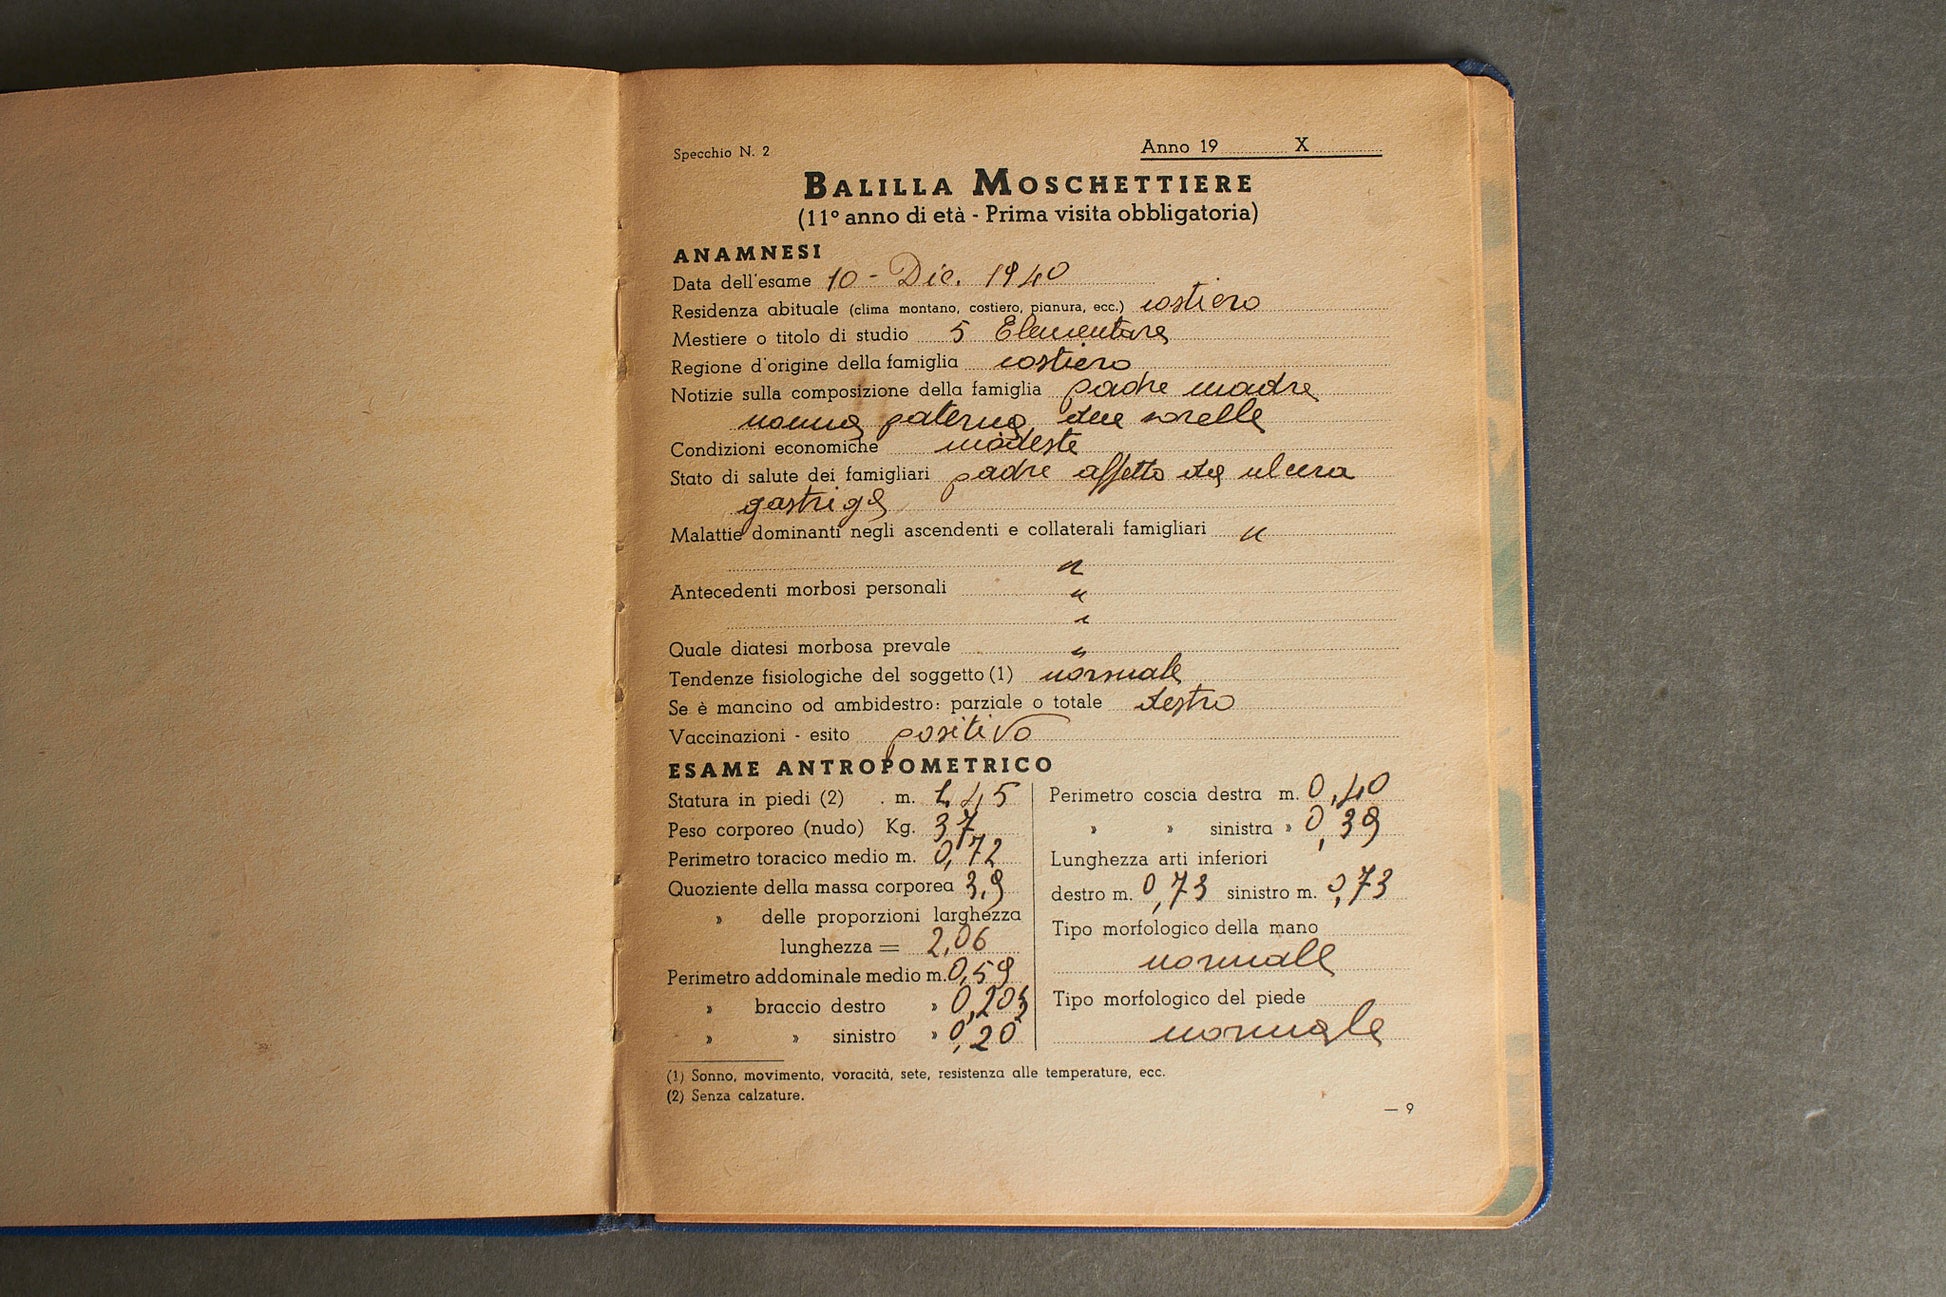 Specchio N. 2
Anno 19 X
BALILLA MOSCHETTIERE
(11º anno di età - Prima visita obbligatoria)
ANAMNESI
Data dell'esame 10 - Dic. 1940
Residenza abituale (clima montano, costiero, pianura, ecc.) costiero
Mestiere o titolo di studio 5 Elementare
Regione d'origine della famiglia costiero
Notizie sulla composizione della famiglia padre madre
nonna paterna due sorelle
Condizioni economiche modeste
Stato di salute dei famigliari padre affetto da ulcera
gastriga
Malattie dominanti negli ascendenti e collaterali famigliari "
"
Antecedenti morbosi personali "
"
Quale diatesi morbosa prevale "
Tendenze fisiologiche del soggetto (1) normale
Se è mancino od ambidestro: parziale o totale destro
Vaccinazioni - esito positivo
ESAME ANTROPOMETRICO
Statura in piedi (2) . m. 1,45
Peso corporeo (nudo) Kg. 37
Perimetro toracico medio m. 0,72
Quoziente della massa corporea 3,9
» delle proporzioni larghezza
lunghezza = 2,06
Perimetro addominale medio m. 0,59
» braccio destro » 0,205
» » sinistro » 0,20
Perimetro coscia destra m. 0,40
» » sinistra » 0,39
Lunghezza arti inferiori
destro m. 0,73 sinistro m. 0,73
Tipo morfologico della mano
normale
Tipo morfologico del piede
normale
(1) Sonno, movimento, voracità, sete, resistenza alle temperature, ecc.
(2) Senza calzature.
— 9